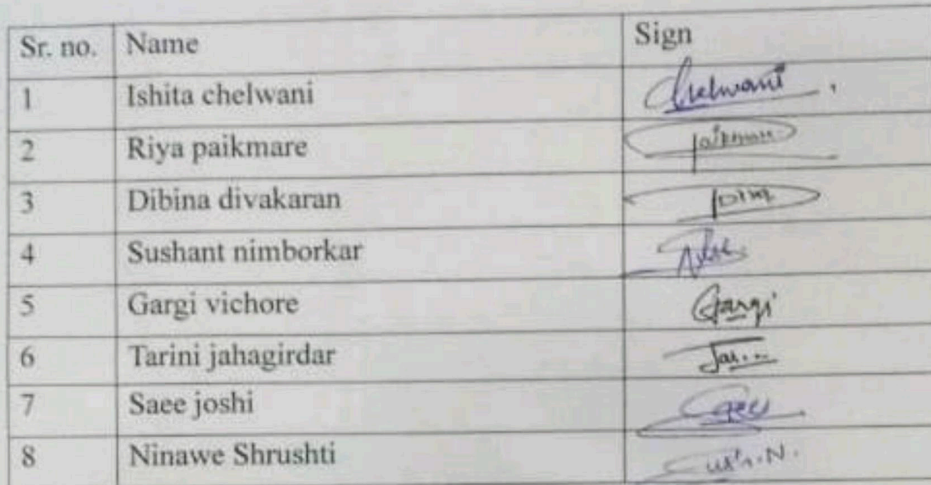 Sr. no. Name Sign
1 Ishita chelwani Chelwani
2 Riya paikmare Paikmare
3 Dibina divakaran
4 Sushant nimborkar
5 Gargi vichore Gargi
6 Tarini jahagirdar
7 Saee joshi Saee
8 Ninawe Shrushti